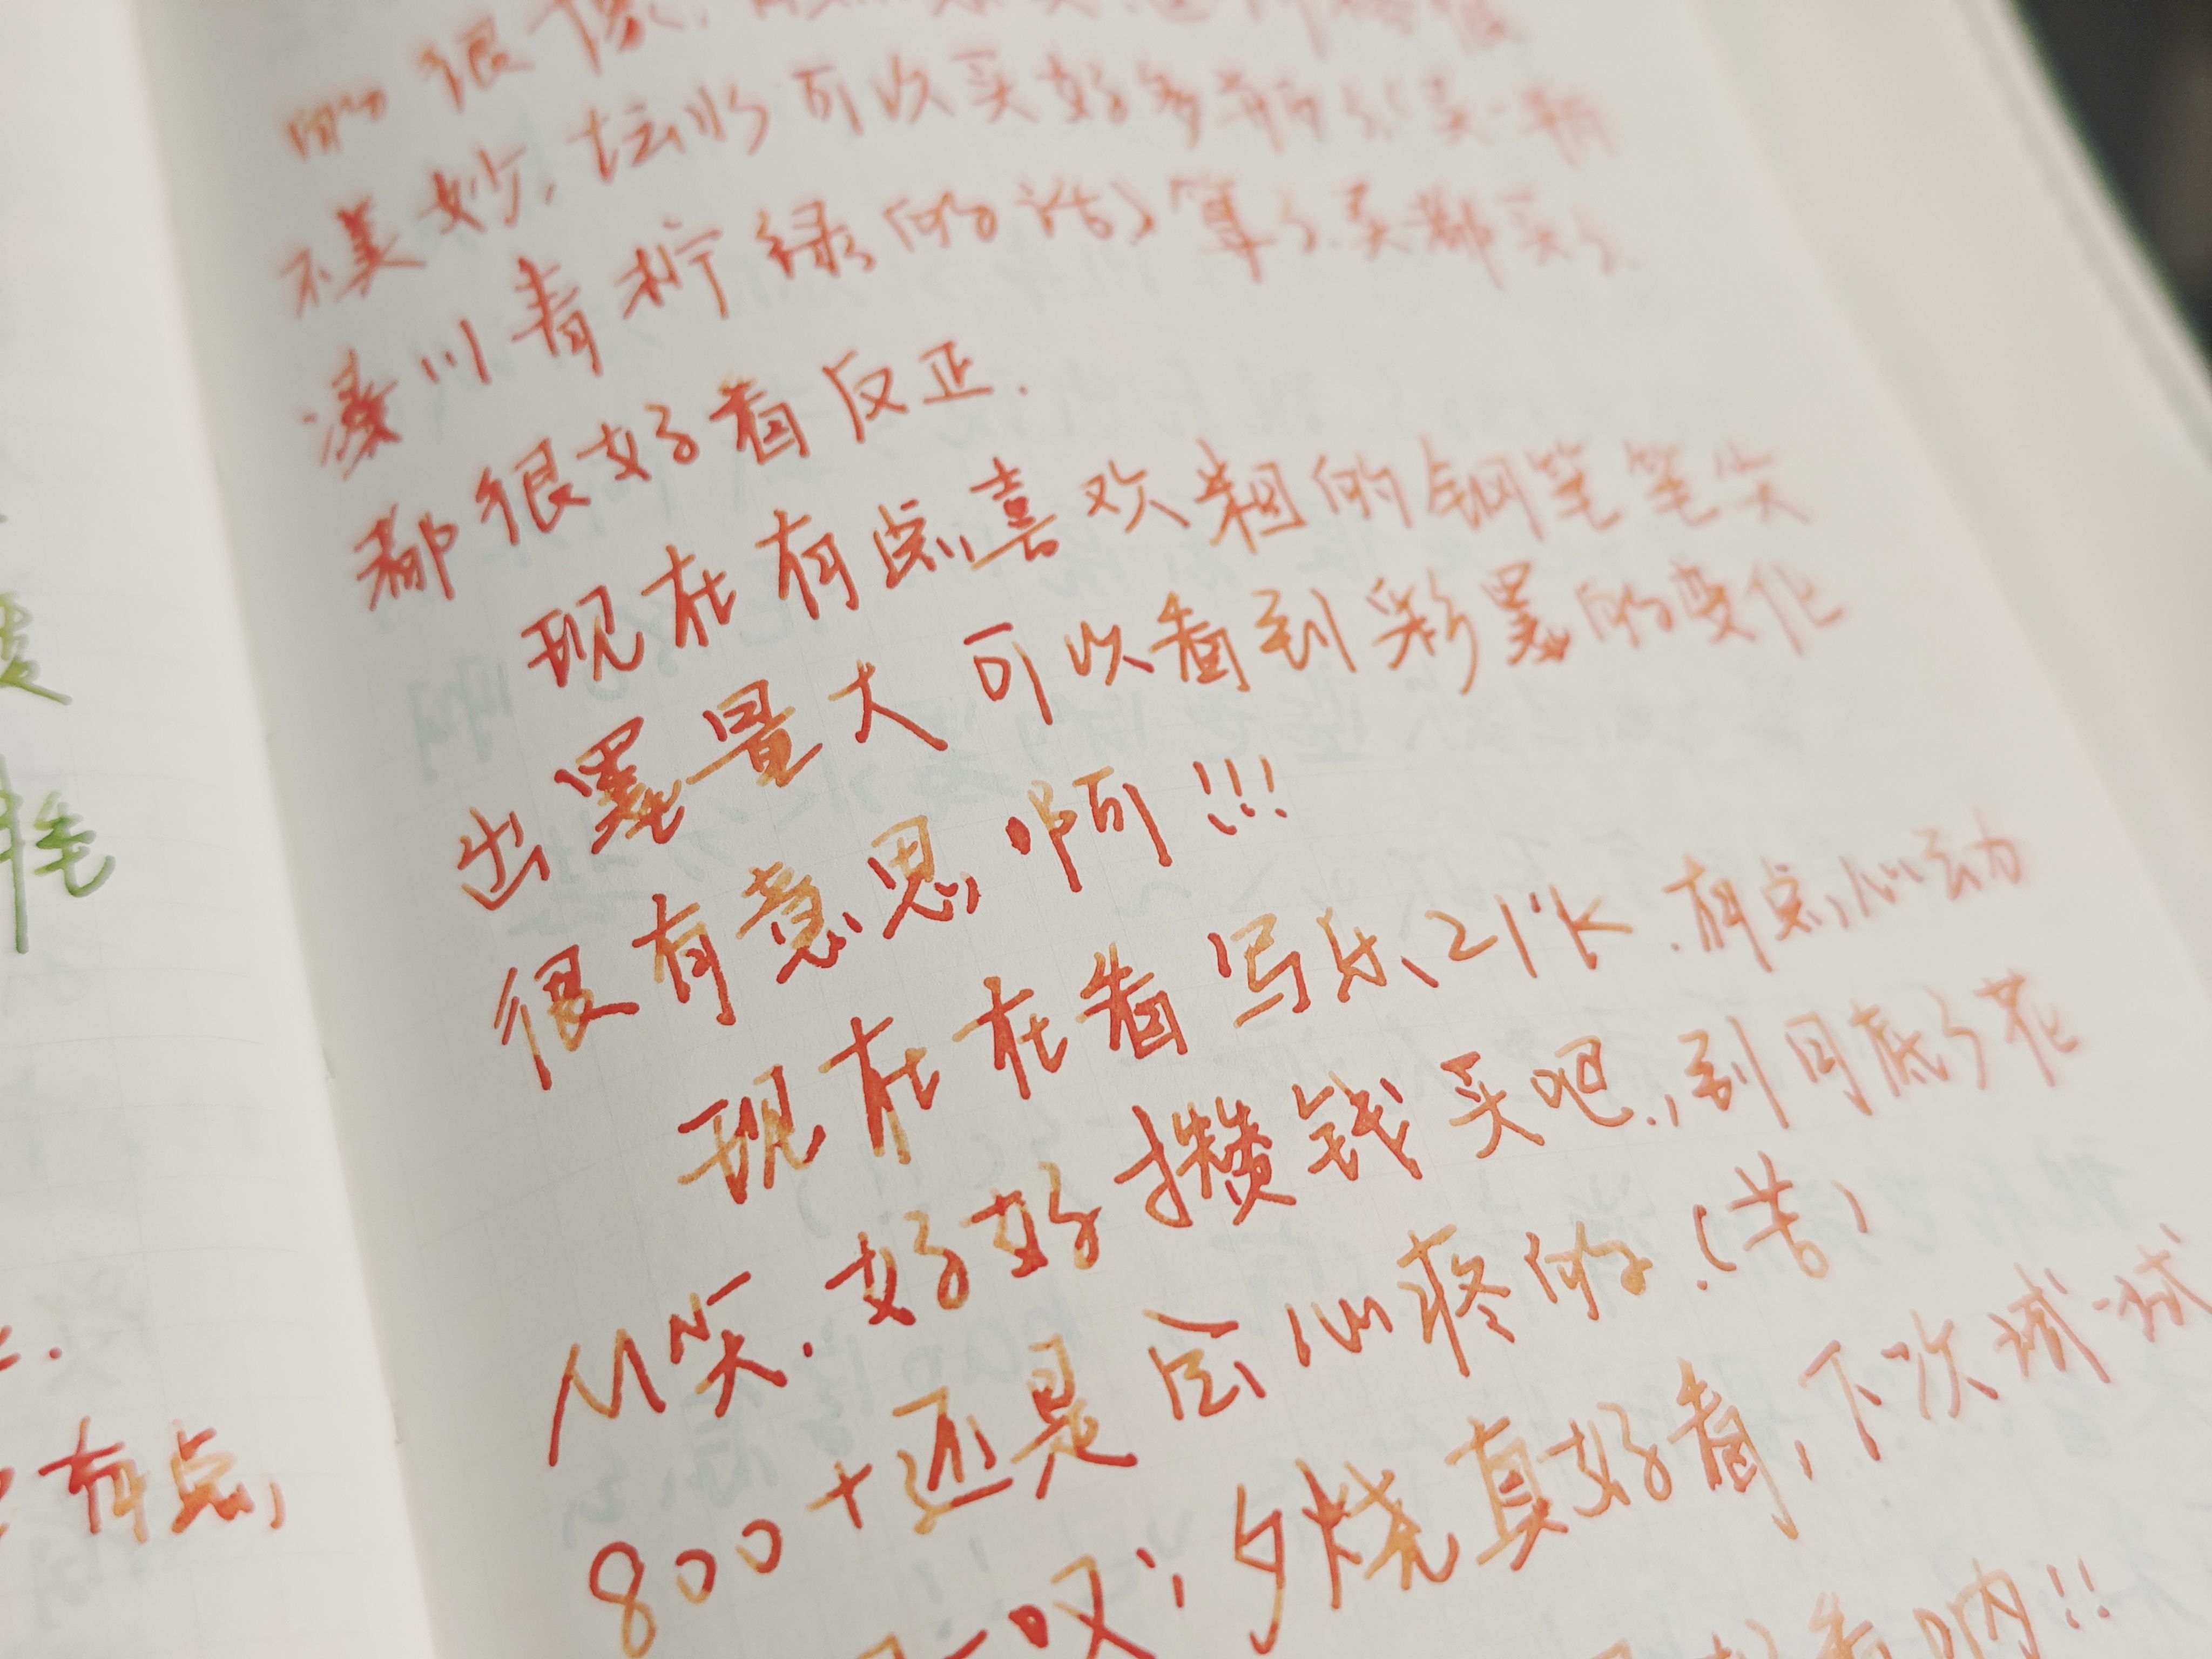 很像，
不美妙，坛水可以买好多瓶了（买一瓶
凑川青柠绿的话）算了买都买了.
都很好看反正.
现在有点喜欢粗的钢笔笔尖
出墨量大可以看到彩墨的变化
很有意思啊!!!
现在在看写乐21K.有点心动
M尖.好好攒钱买吧.,到月底了花
800+还是会心疼的.(苦)
一叹;夕烧真好看,下次试一试
好看呐!!
有点,